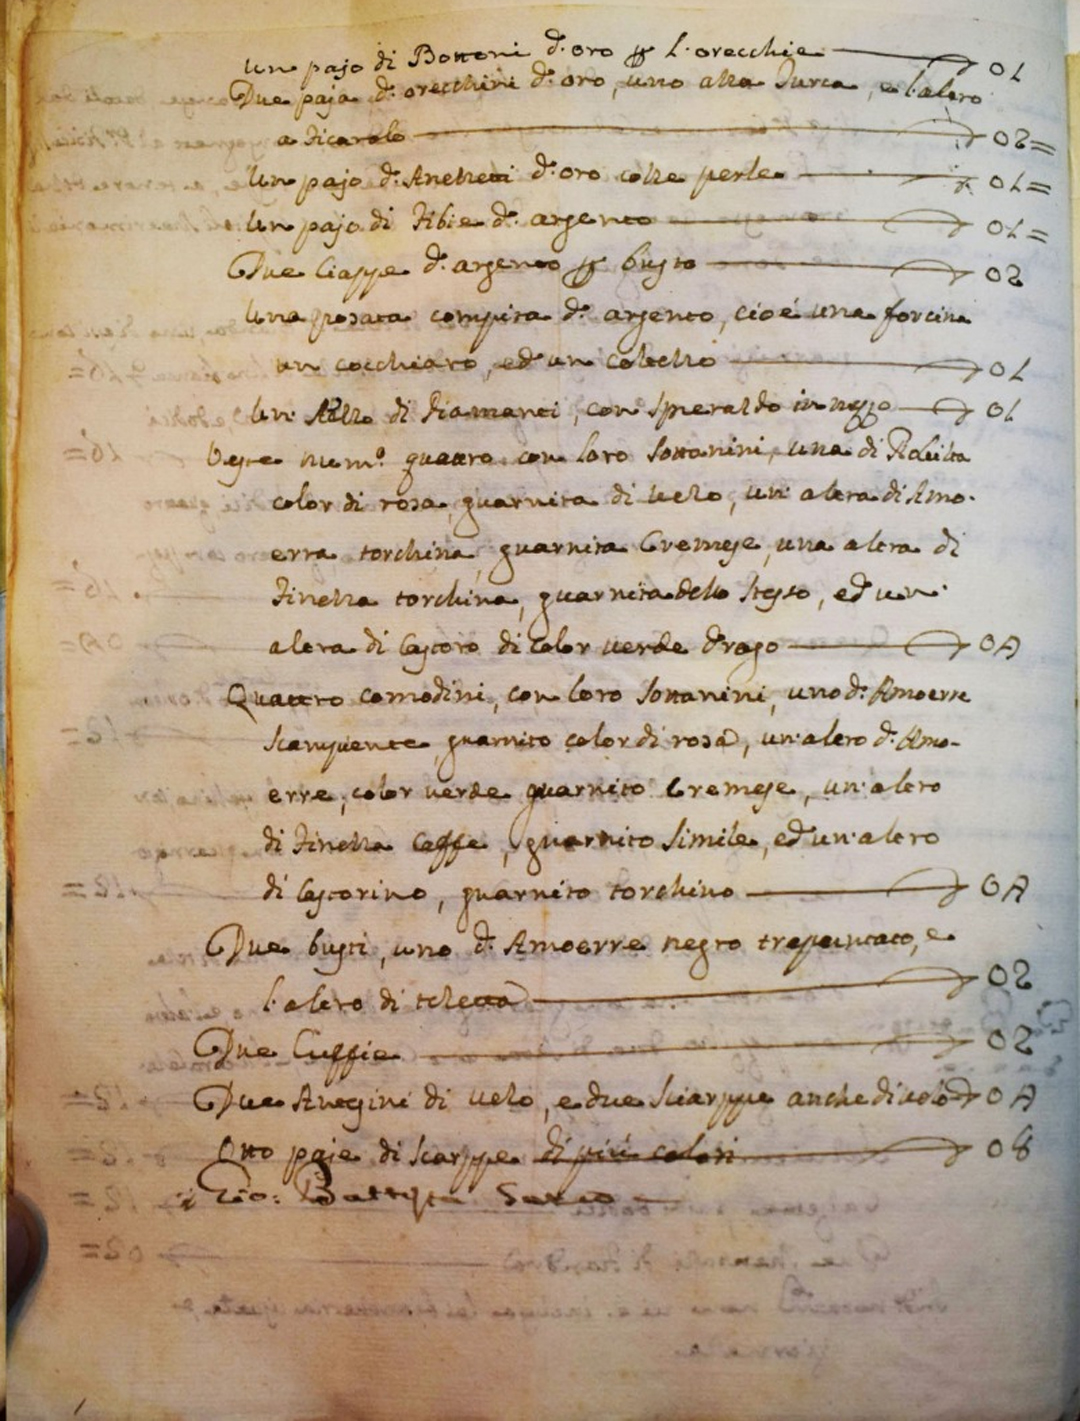 un pajo di Bottoni d'oro p l'orecchie 01
Due paja d'orecchini d'oro, uno alla Turca, e l'altro
a Ficarolo 02=
un pajo d'Anelletti d'oro colle perle 01=
un pajo di Fibie d'argento 01=
Due Ciappe d'argento p busto 02
una posata compita d'argento, cioé una forcina
un cocchiaro, ed un coltello 01
un' di diamanti, con Smeraldo in mezzo 01
Veste num.º quattro con loro Sottanini, una di
color di rosa, guarnita di velo, un' altra di Amo-
erra torchina, guarnita Cremese, una altra di
Finella torchina, guarnita dello stesso, ed un'
altra di Castoro di color verde drago 04
Quattro comodini, con loro Sottanini, uno d'Amoerre
guarnito color di rosa, un'altro d'Amo-
erre, color verde guarnito Cremese, un'altro
di Finella Caffe, guarnito simile, ed un'altro
di Castorino, guarnito torchino 04
Due busti, uno d'Amoerre negro trapuntato, e
l'altro di teletta 02
Due Cuffie 02
Due di velo, e due Sciarppe anche di velo 04
Otto paje di Scarppe di più colori 08
Gio: Battista